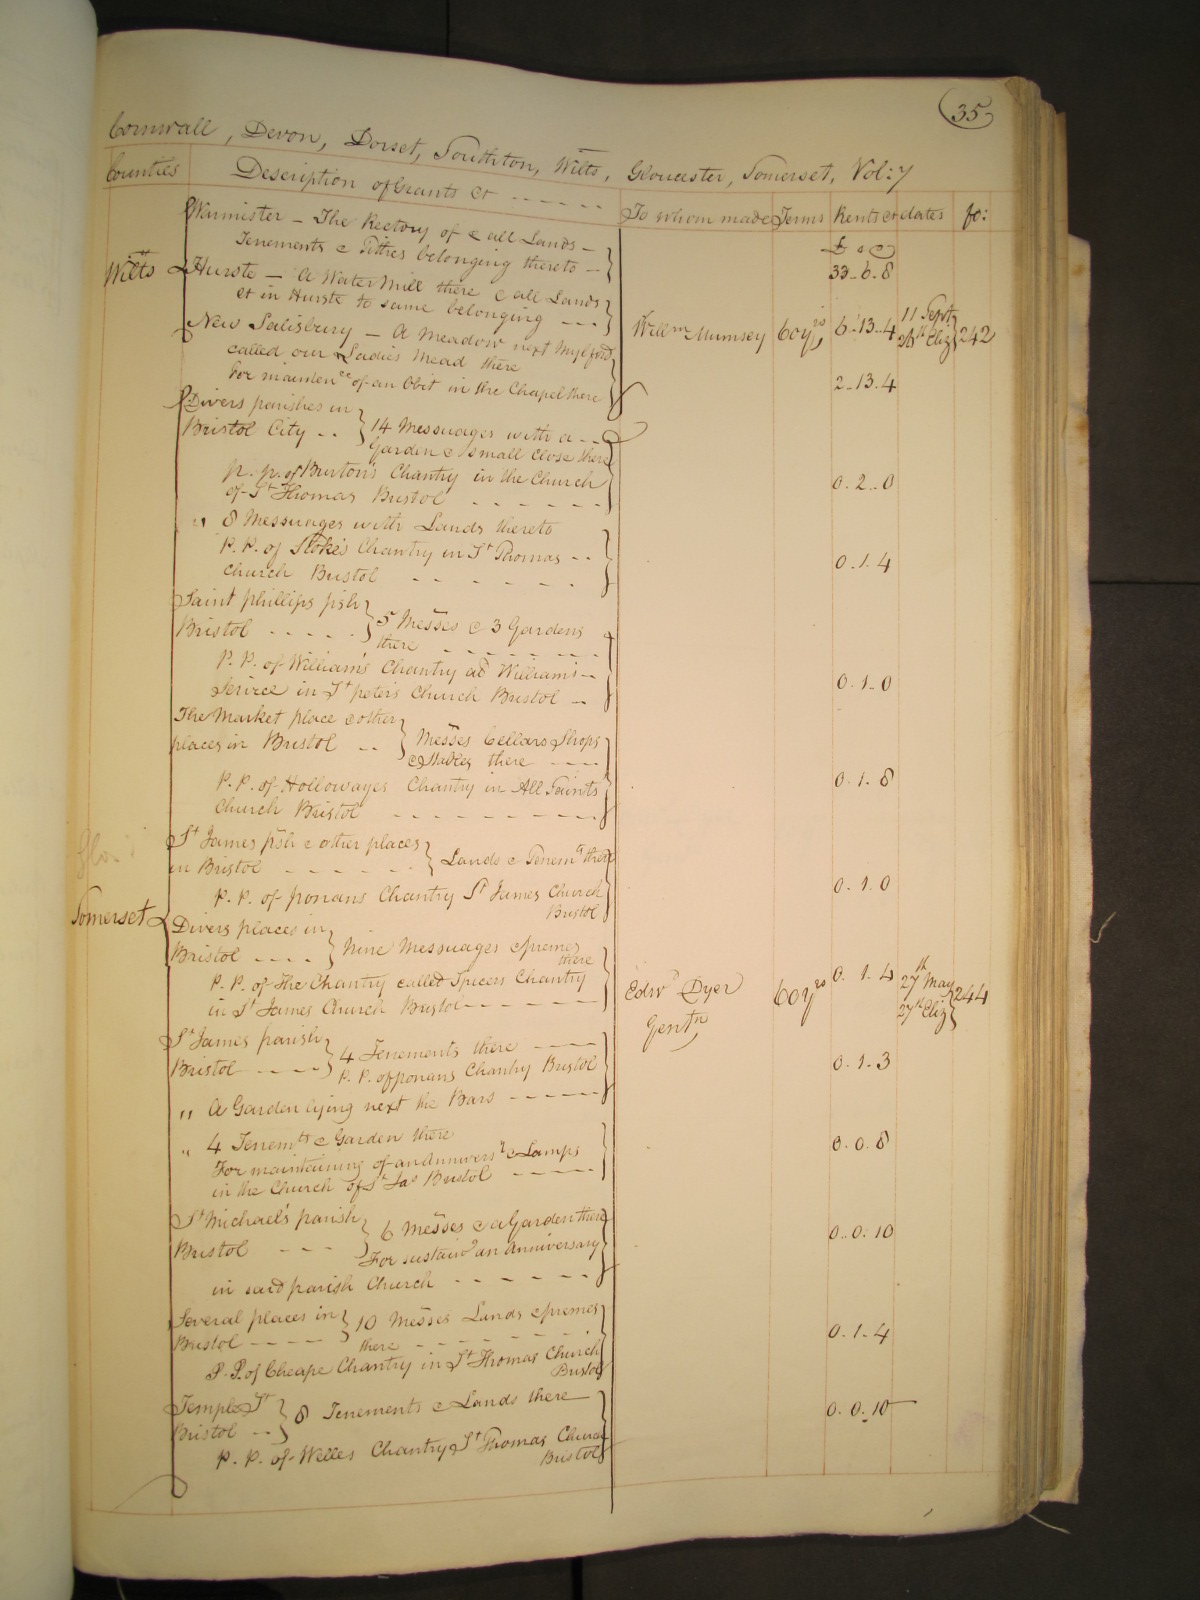 35
Cornwall, Devon, Dorset, Southton, Wilts, Gloucester, Somerset, Vol: 7
Counties Description of Grants &c To whom made Terms Rents & dates fo:
£ s d
Warmister - The Rectory of & all Lands -
Tenements & Tithes belonging thereto - 33-6-8
Wilts Hurste - A Water Mill there & all Lands
&c in Hurste to same belonging - - - Willm Mumsey 60 yrs 6-13-4 11 Septr 26th Eliz 242
New Salisbury - A Meadow next
called our Ladies Mead there
For maintence of an Obit in the Chapel there 2-13-4
Divers parishes in
Bristol City - - 14 Messuages with a - -
Garden & small close there
p. p. of Burton's Chantry in the Church 0.2.0
of St Thomas Bristol - - - - - -
" 8 Messuages with Lands thereto
P. P. of Stoke's Chantry in St Thomas - - 0.1.4
Church Bristol - - - - - - -
Saint phillips psh
Bristol - - - - - 5 Messes & 3 Gardens
there - - - - - - -
P. P. of William's Chantry Williams - 0.1.0
Service in St peter's Church Bristol -
The Market place & other
places in Bristol - - Messes Cellars Shops
& Stables there - - - -
P. P. of Hollowayes Chantry in All Saints 0.1.8
Church Bristol - - - - - - - - -
St James psh & other places
in Bristol - - - - - - Lands & Tenemts there
P. P. of ponans Chantry St James Church 0.1.0
Bristol
Somerset Divers places in
Bristol - - - - Nine Messuages & premes
there
P. P. of the Chantry called Spicers Chantry
in St James Church Bristol - - - - - - Edwd Dyer Gentn 60 yrs 0.1.4 27th May 27th Eliz 244
St James parish
Bristol - - - - 4 Tenements there - - - -
P. P. of ponans Chantry Bristol 0.1.3
" A Garden lying next the Bars - - - - - -
" 4 Tenemts & Garden there 0.0.8
For maintaining of an Annivery & Lamps
in the Church of St Jas Bristol - - - - -
St Michael's parish
Bristol - - - 6 Messes & a Garden there 0.0.10
For sustaing an Anniversary
in said parish Church - - - - - -
Several places in
Bristol - - - - - 10 Messes Lands & premes 0.1.4
there - - - - - - -
P. P. of Cheape Chantry in St Thomas Church
Bristol
Temple St
Bristol - - 8 Tenements & Lands there 0.0.10
P. P. of Welles Chantry St Thomas Church
Bristol